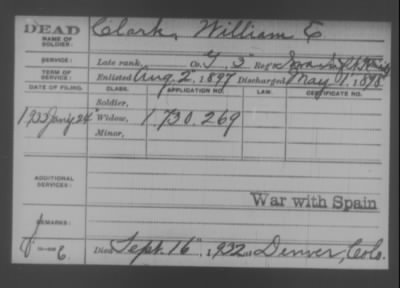 DEAD
NAME OF SOLDIER:
Clark, William E.
SERVICE:
Late rank, Co. 3" Reg't
TERM OF SERVICE:
Enlisted Aug. 2", 1897 Discharged May 1", 1898
DATE OF FILING. CLASS. APPLICATION NO. LAW. CERTIFICATE NO.
Soldier,
1933 Jany 24" Widow, 1.730.269
Minor,
ADDITIONAL SERVICES:
War with Spain
REMARKS:
Died Sept. 16", 1932 at Denver, Colo.